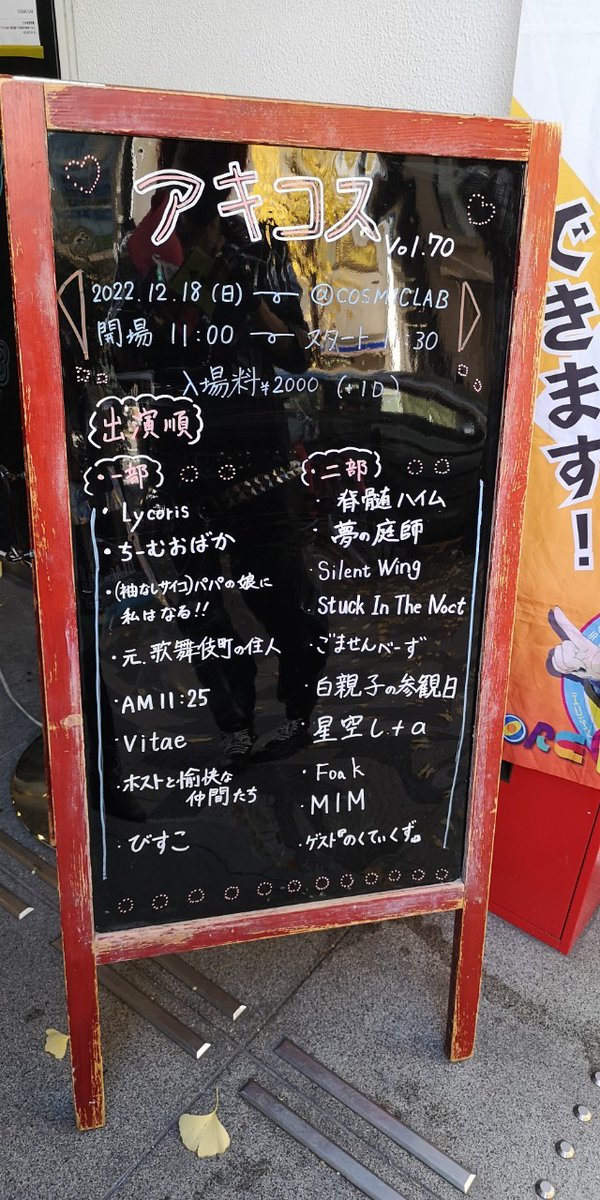 アキコス
Vol.70
2022.12.18(日) @COSMICLAB
開場 11:00 スタート 30
入場料¥2000 (+1D)
出演順
・一部
・Lycoris
・ちーむおばか
・(袖なしサイコ)パパの娘に
私はなる!!
・元.歌舞伎町の住人
・AM11:25
・Vitae
・ホストと愉快な
仲間たち
・びすこ
・二部
脊髄ハイム
・夢の庭師
・Silent Wing
・Stuck In The Noct
・ごませんべーず
・白親子の参観日
・星空し+a
・Foak
・MIM
・ゲスト『のくてぃくず』
できます!